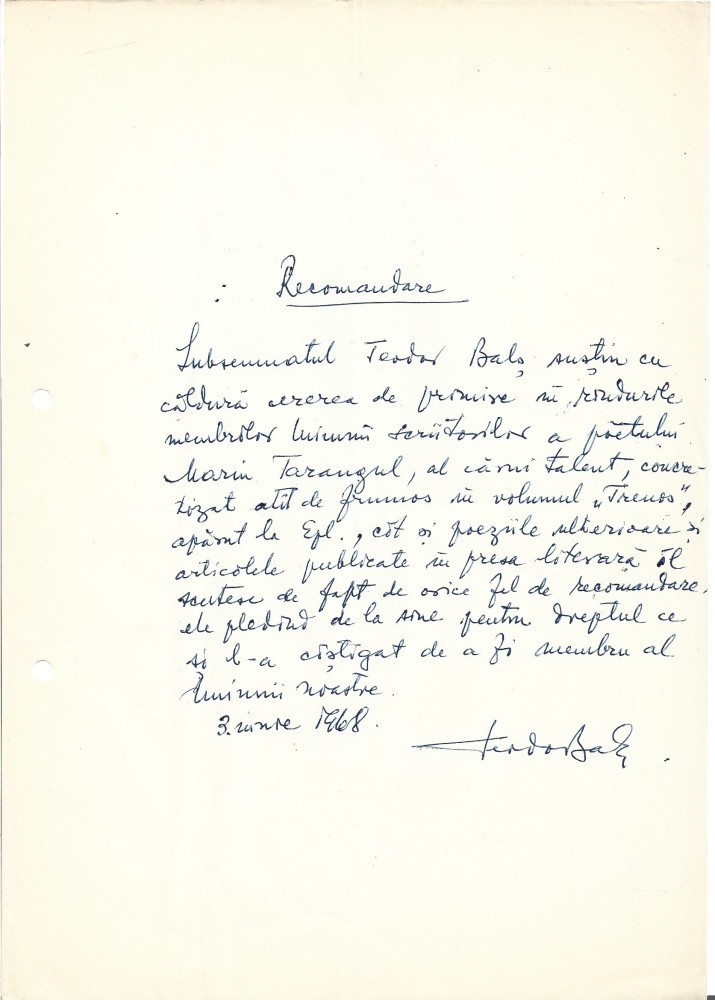 Recomandare
Subsemnatul Teodor Balș susțin cu
căldură cererea de primire în rîndurile
membrilor Uniunii Scriitorilor a poetului
Marin Tarangul, al cărui talent, concre-
tizat atît de frumos în volumul „Trenos”,
apărut la Epl., cît și poeziile ulterioare și
articolele publicate în presa literară îl
scutesc de fapt de orice fel de recomandare,
ele pledînd de la sine pentru dreptul ce
și l-a cîștigat de a fi membru al
Uniunii noastre.
3. iunie 1968.
Teodor Balș